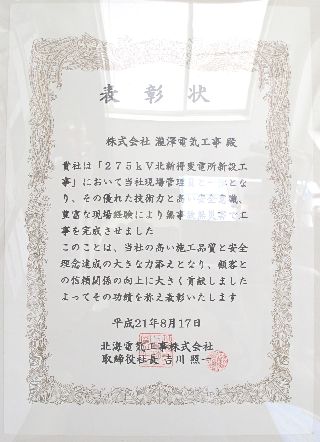 表彰状
株式会社 瀧澤電気工事 殿
貴社は「275kV北新得変電所新設工
事」において当社現場管理員と一体とな
り、その優れた技術力と高い安全意識、
豊富な現場経験により無事故無災害で工
事を完成させました
このことは、当社の高い施工品質と安全
理念達成の大きな力添えとなり、顧客と
の信頼関係の向上に大きく貢献しました
よってその功績を称え表彰いたします
平成21年8月17日
北海電気工事株式会社
取締役社長 吉川 照一